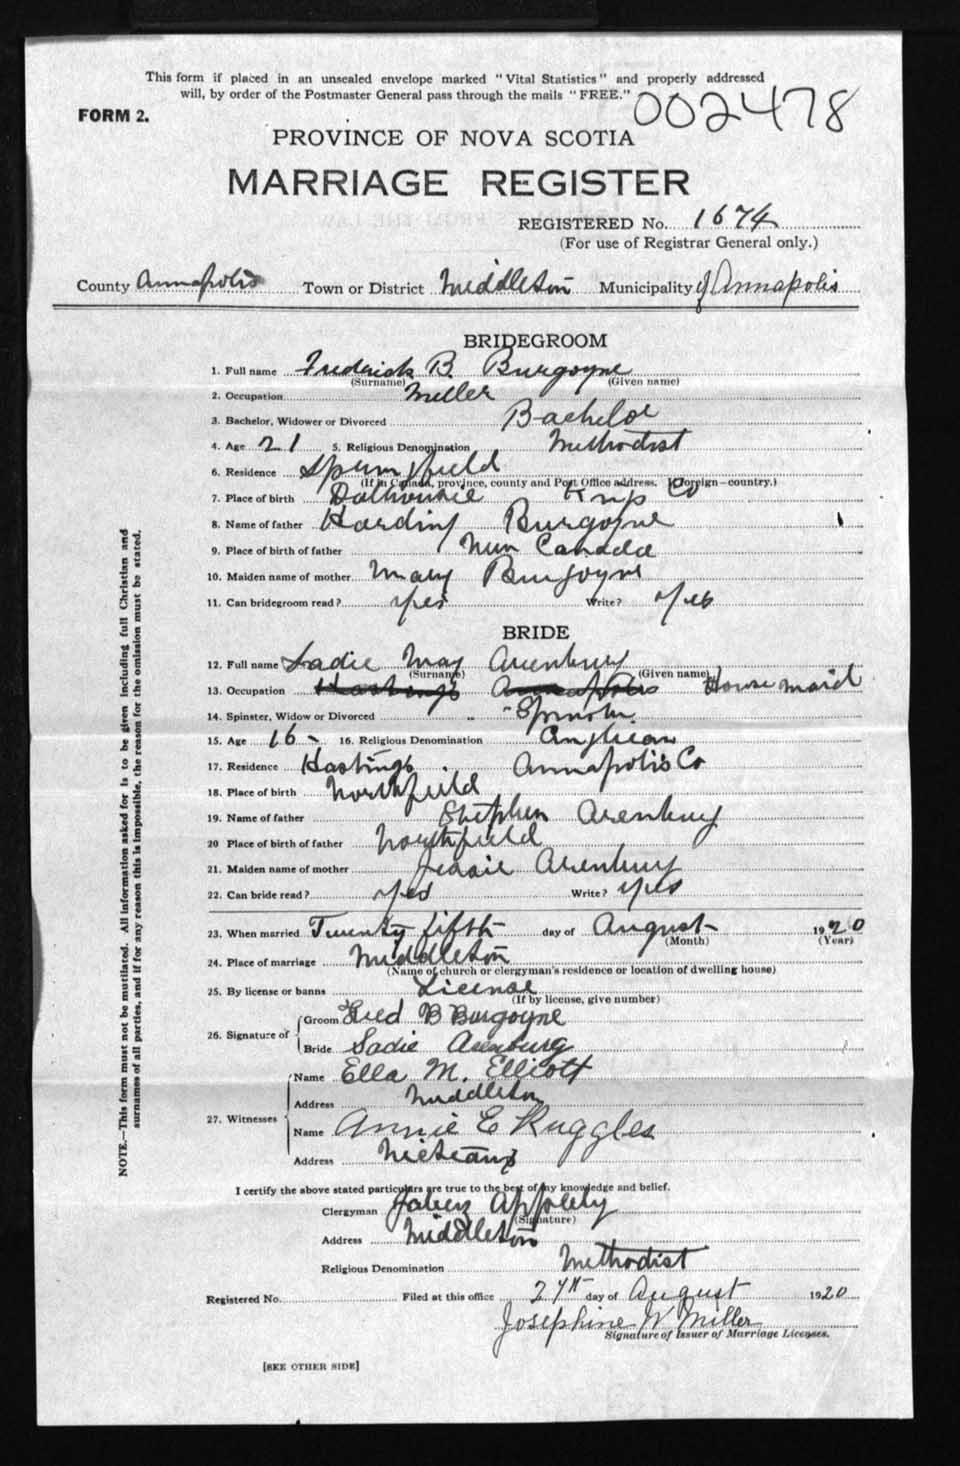 This form if placed in an unsealed envelope marked "Vital Statistics" and properly addressed
will, by order of the Postmaster General pass through the mails "FREE."
002478
FORM 2.
PROVINCE OF NOVA SCOTIA
MARRIAGE REGISTER
REGISTERED No. 1674
(For use of Registrar General only.)
County Annapolis Town or District Middleton Municipality of Annapolis
BRIDEGROOM
1. Full name Frederick B. Burgoyne
(Surname) (Given name)
2. Occupation Miller
3. Bachelor, Widower or Divorced Bachelor
4. Age 21 5. Religious Denomination Methodist
6. Residence Springfield
(If in Canada, province, county and Post Office address. If foreign—country.)
7. Place of birth Dalhousie Kings Co
8. Name of father Harding Burgoyne
9. Place of birth of father New Canada
10. Maiden name of mother Mary Burgoyne
11. Can bridegroom read? yes Write? yes
BRIDE
12. Full name Sadie May Arenburg
(Surname) (Given name)
13. Occupation Hastings Annapolis House maid
14. Spinster, Widow or Divorced Spinster
15. Age 16 - 16. Religious Denomination Anglican
17. Residence Hastings Annapolis Co
18. Place of birth Northfield
19. Name of father Stephen Arenburg
20 Place of birth of father Northfield
21. Maiden name of mother Jessie Arenburg
22. Can bride read? yes Write? yes
23. When married Twenty fifth day of August 1920
(Month) (Year)
24. Place of marriage Middleton
(Name of church or clergyman's residence or location of dwelling house)
25. By license or banns License
(If by license, give number)
26. Signature of Groom Fred B Burgoyne
Bride Sadie Arenburg
27. Witnesses Name Ella M. Ellicott
Address Middleton
Name Annie E Ruggles
Address Nictaux
I certify the above stated particulars are true to the best of my knowledge and belief.
Clergyman Jabez Appleby
(Signature)
Address Middleton
Religious Denomination Methodist
Registered No. Filed at this office 27th day of August 1920
Josephine W Miller
Signature of Issuer of Marriage Licenses.
[SEE OTHER SIDE]
NOTE.—This form must not be mutilated. All information asked for is to be given including full Christian and
surnames of all parties, and if for any reason this is impossible, the reason for the omission must be stated.